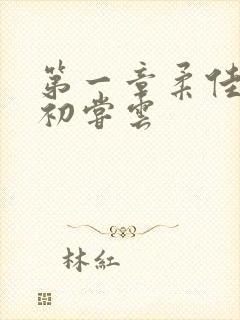 第一章柔佳
初嘗雲
林紅